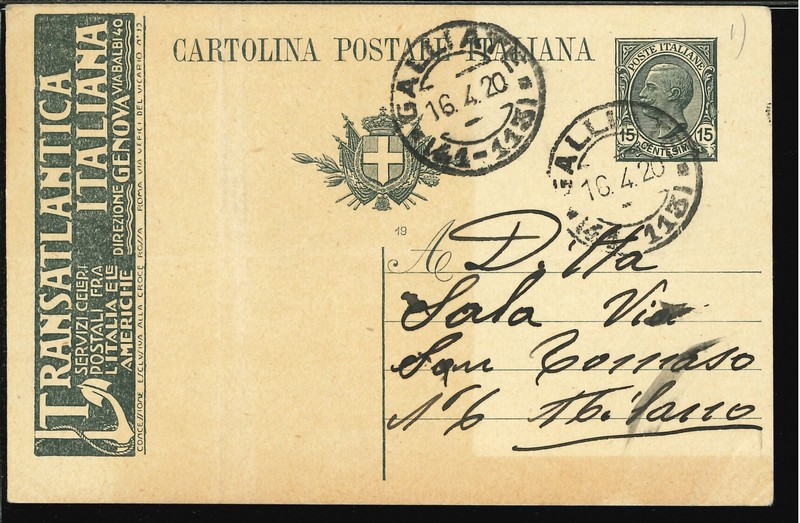 CARTOLINA POSTALE ITALIANA
1)
POSTE ITALIANE
15 15
CENTESIMI
16.4.20
(41-113)
16.4.20
TRANSATLANTICA
ITALIANA
SERVIZI CELERI
POSTALI FRA
L'ITALIA E LE
AMERICHE
DIREZIONE GENOVA VIA BALBI 40
CONCESSIONE ESCLUSIVA ALLA CROCE ROSSA ROMA VIA UFFICI DEL VICARIO N° 12
19
A Ditta
Sala Via
San Tomaso
N° 6 Milano